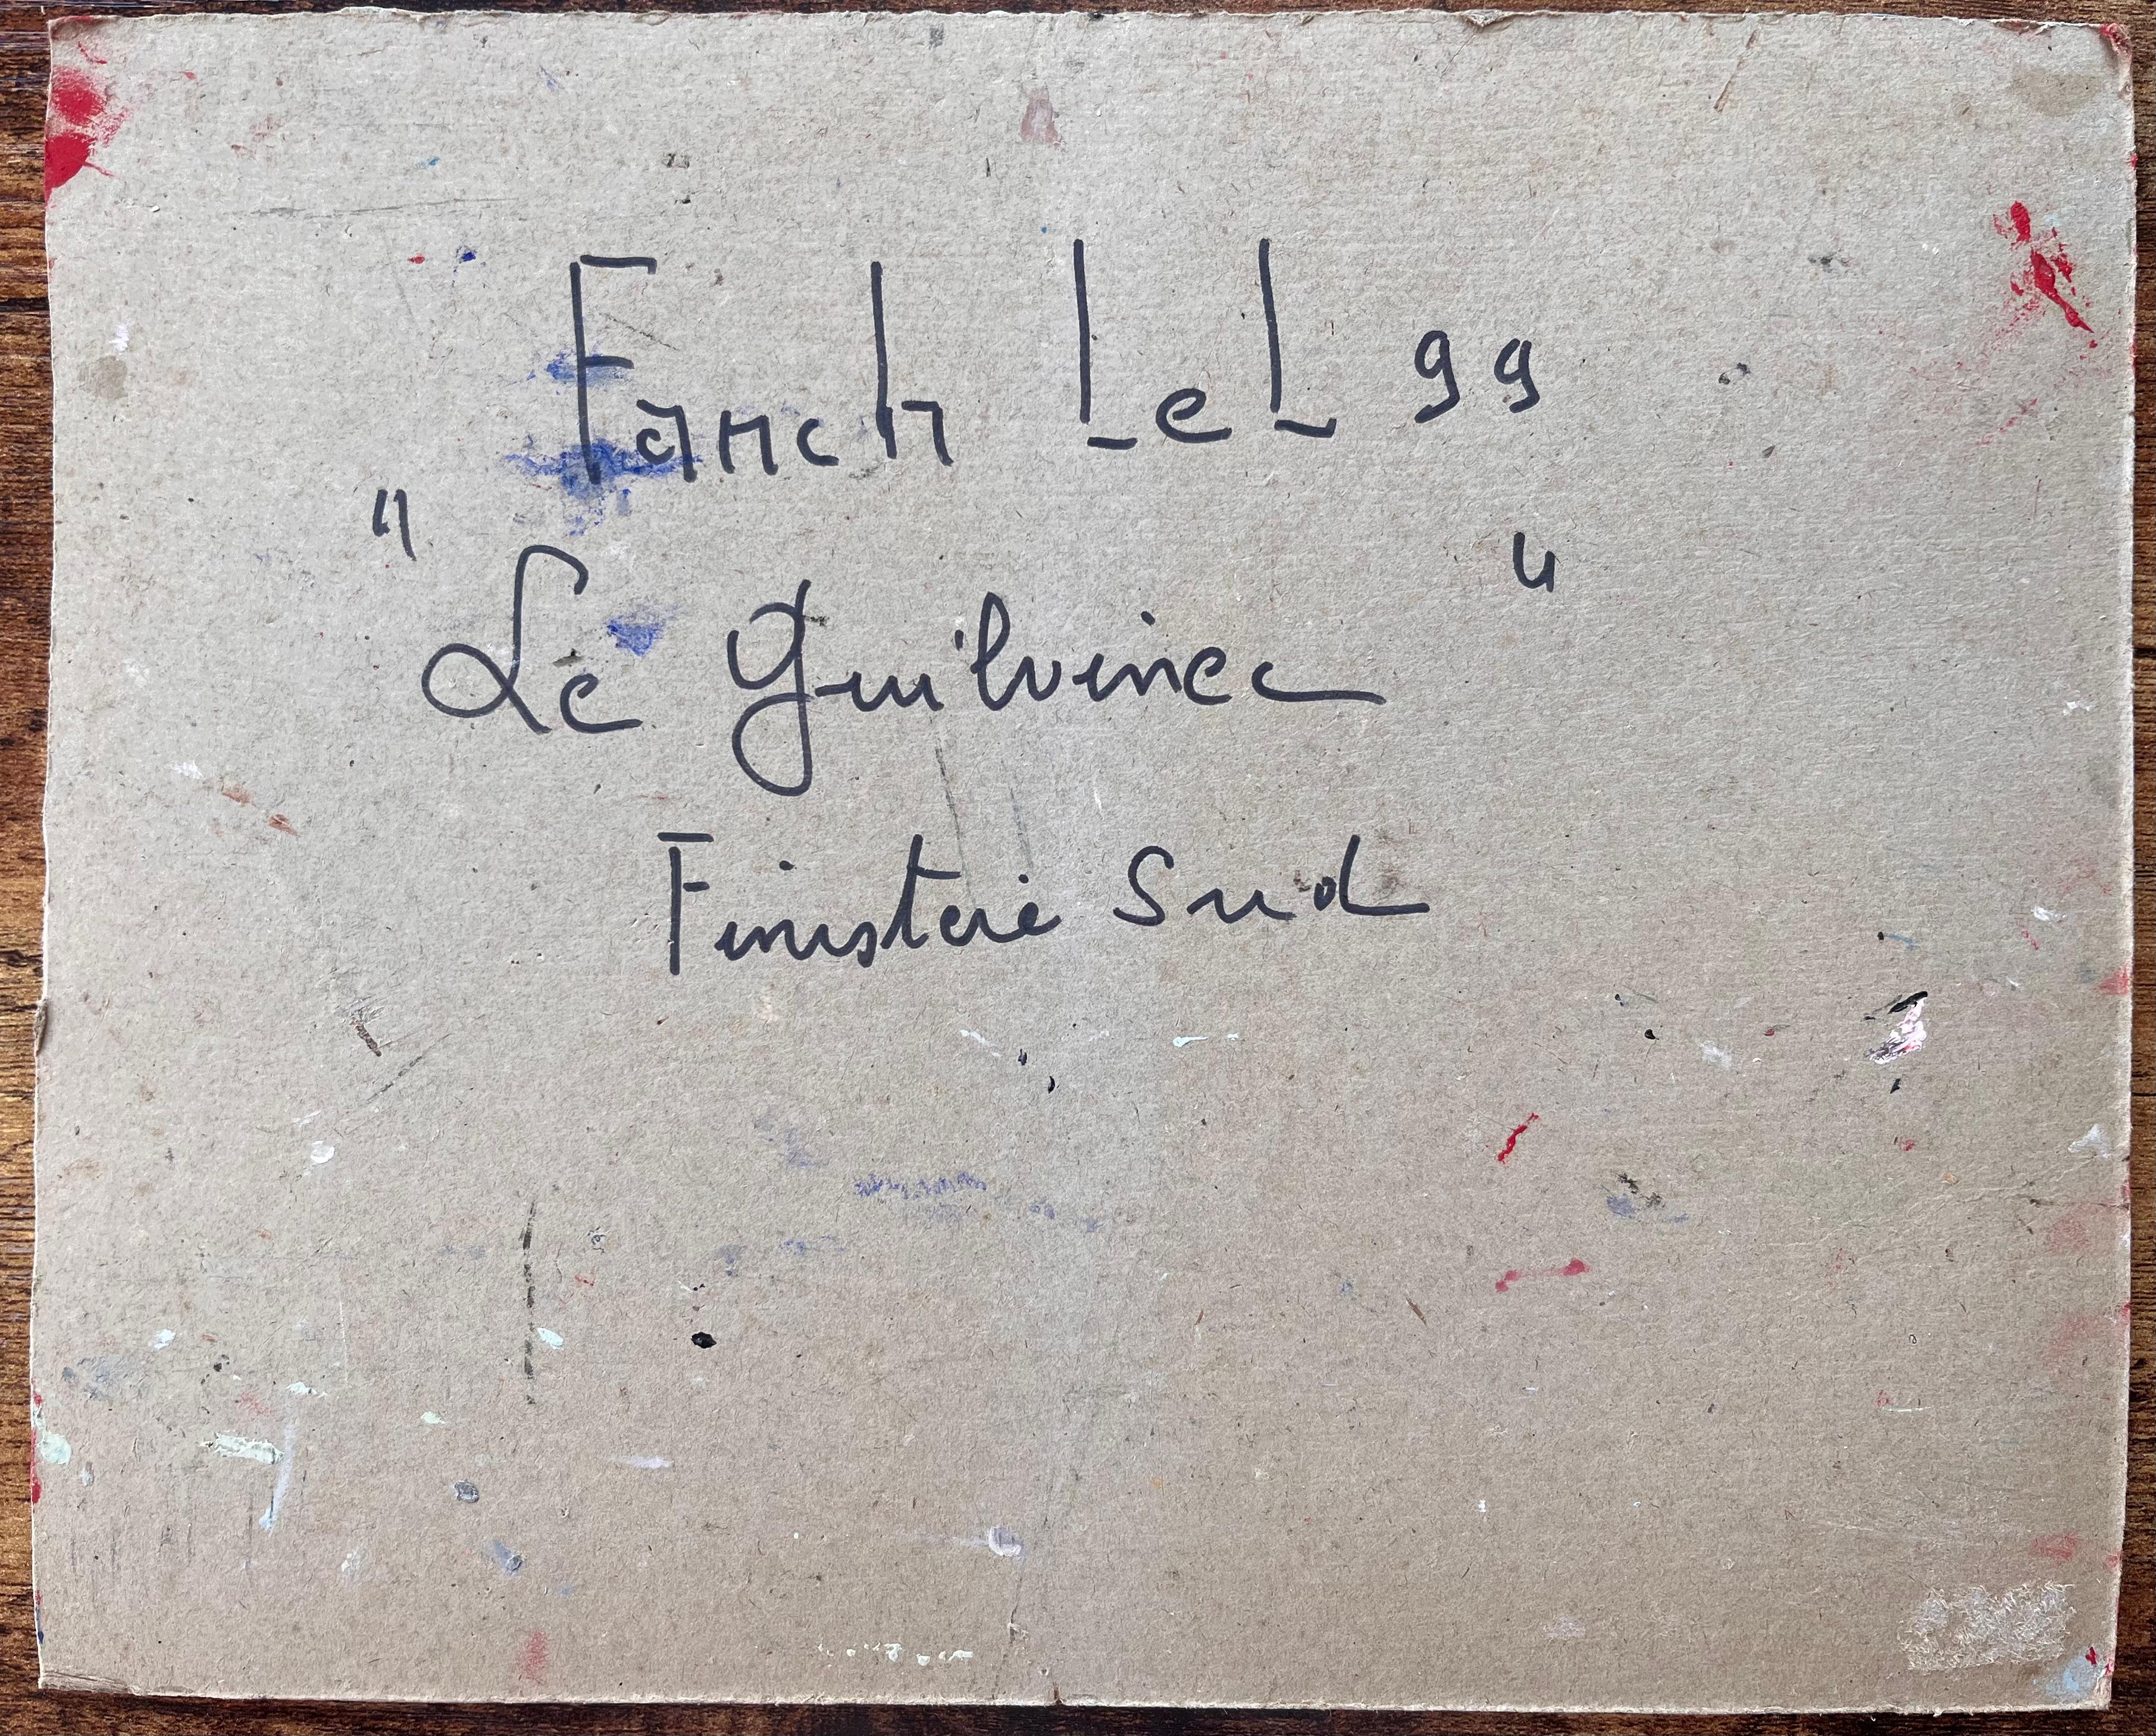 Fanch LeL 99
"Le Guilvinec"
Finistère Sud